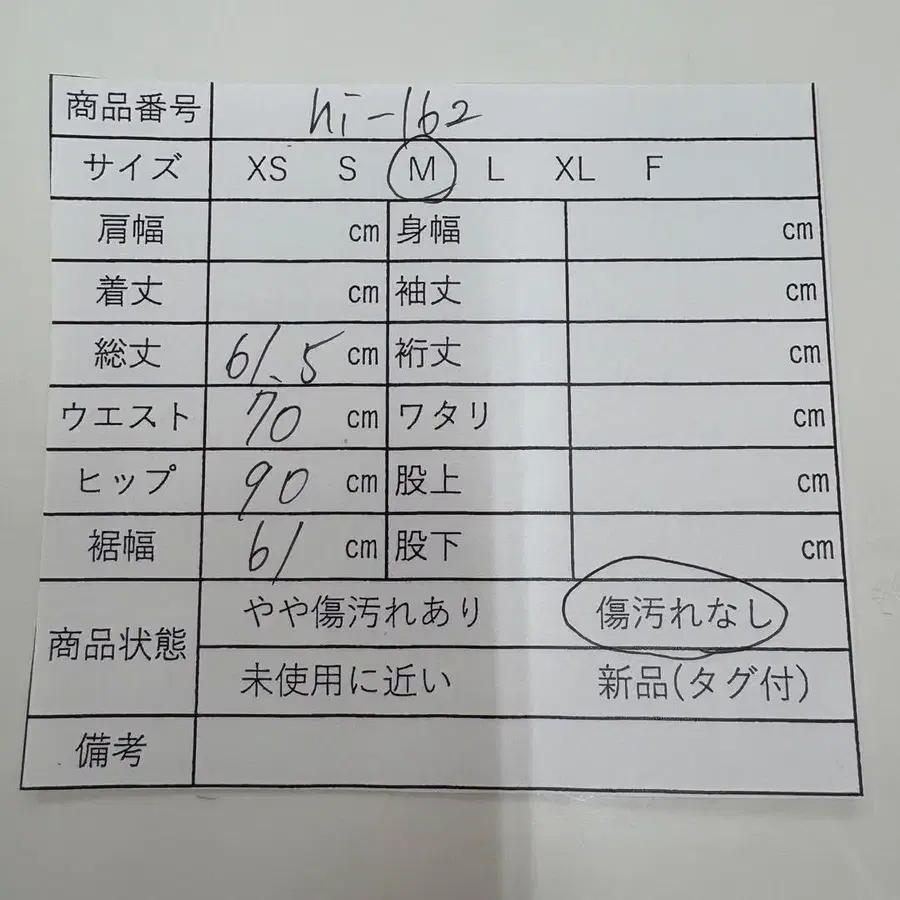 商品番号 hi-162
サイズ XS S M L XL F
肩幅 cm 身幅 cm
着丈 cm 袖丈 cm
総丈 61.5 cm 裄丈 cm
ウエスト 70 cm ワタリ cm
ヒップ 90 cm 股上 cm
裾幅 61 cm 股下 cm
商品状態 やや傷汚れあり 傷汚れなし
未使用に近い 新品(タグ付)
備考